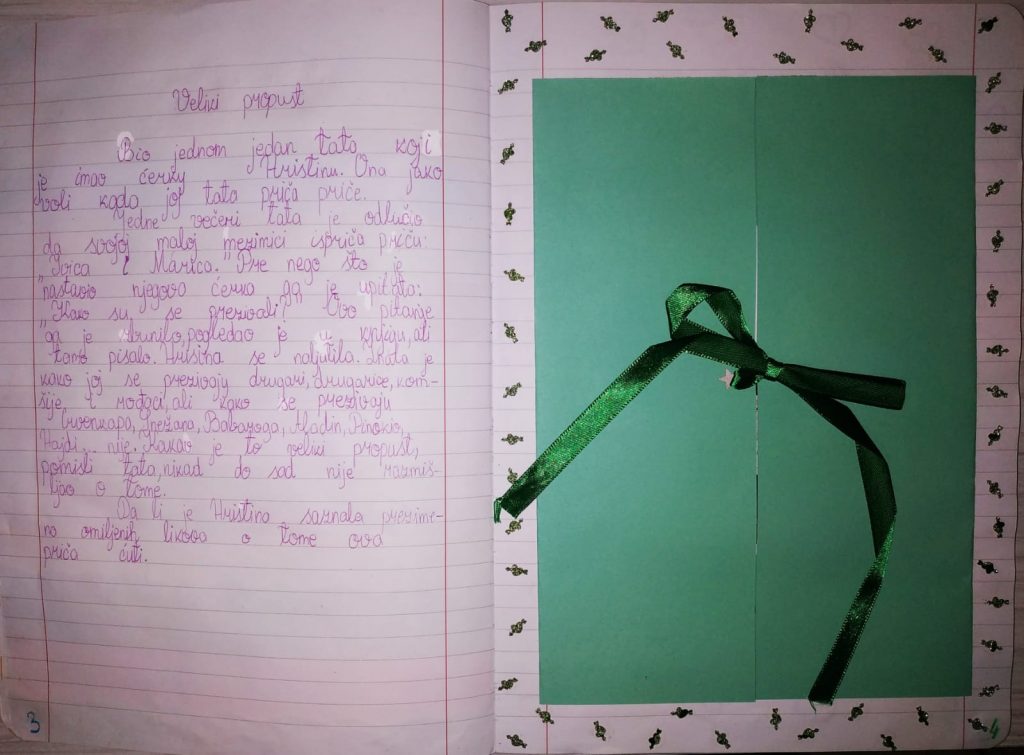 Veliki propust
Bio jednom jedan tata koji
je imao ćerku Hristinu. Ona jako
voli kada joj tata priča priče.
Jedne večeri tata je odlučio
da svojoj maloj mezimici ispriča priču:
"Ivica i Marica." Pre nego što je
nastavio njegova ćerka ga je upitala:
"Kako su se prezivali?" Ovo pitanje
ga je zbunilo, pogledao je u knjigu, ali
tamo pisalo. Hristina se naljutila. Znala je
kako joj se prezivaju drugari, drugarice, kom-
šije i rođaci, ali kako se prezivaju
Crvenkapa, Snežana, Babaroga, Aladin, Pinokio,
Hajdi... nije. Kakav je to veliki propust,
pomisli tata, nikad do sad nije razmiš-
ljao o tome.
Da li je Hristina saznala prezime-
na omiljenih likova o tome ova
priča ćuti.
3
4